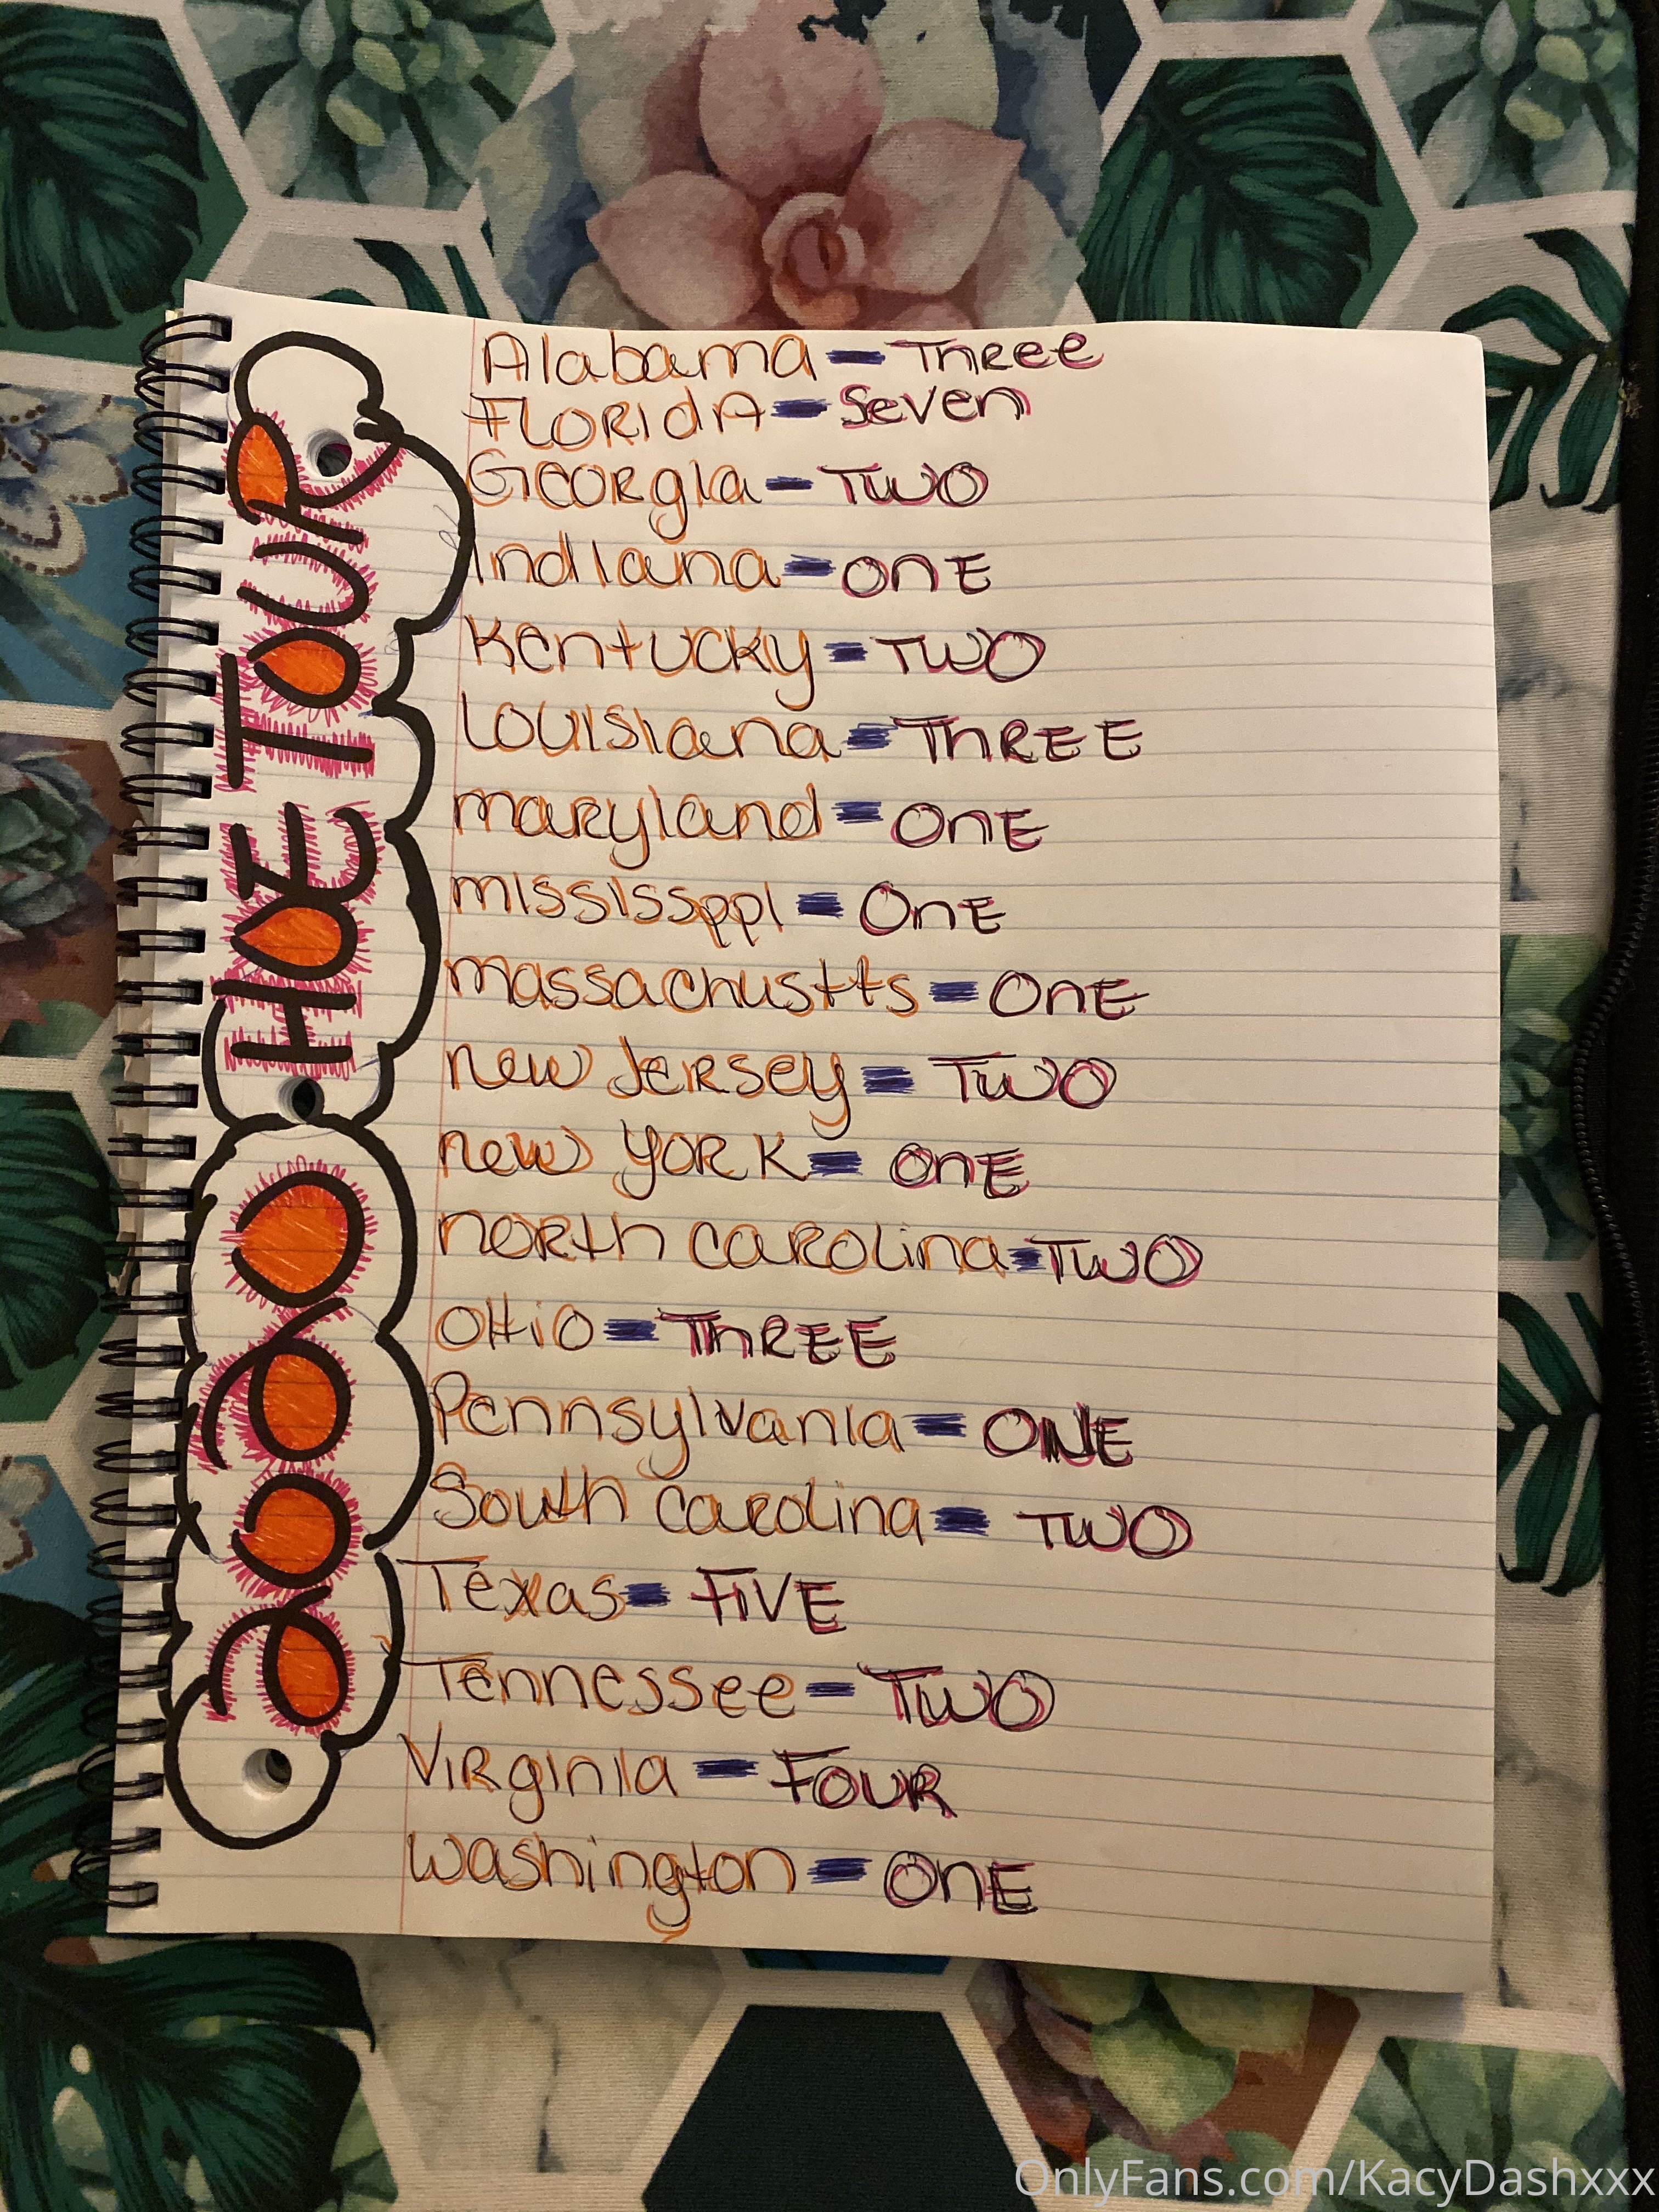 2020 HOE TOUR
Alabama - Three
FLORIdA - Seven
GEORgIa - TWO
IndIana - OnE
KEntucky - TWO
LOUISIana - ThREE
maRyland - OnE
mIssIssppI - OnE
massachustts - OnE
new JERSEy - TWO
new yORK - OnE
nORth caROLina - TWO
OHiO - ThREE
PennsylvanIa - ONE
South caROlina - TWO
Texas - FIVE
Tennessee - TWO
VIRgInIa - FOUR
washington - OnE
OnlyFans.com/KacyDashxxx